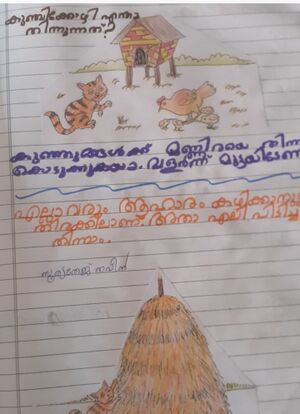 കുഞ്ഞിക്കോഴി എന്താ
തിന്നുന്നത്?
കുഞ്ഞുങ്ങൾക്ക് മണ്ണിരയെ തിന്ന
കൊടുക്കുകയാ. വളർന്ന്
എല്ലാവരും ആഹാരം കഴിക്കുന്ന
തിരക്കിലാണ്. അതാ എലി പിടിച്ച
തിന്നാം.